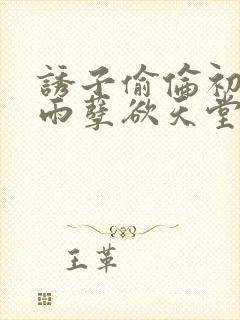 誘子偷倫初
雨孽欲天堂
王革